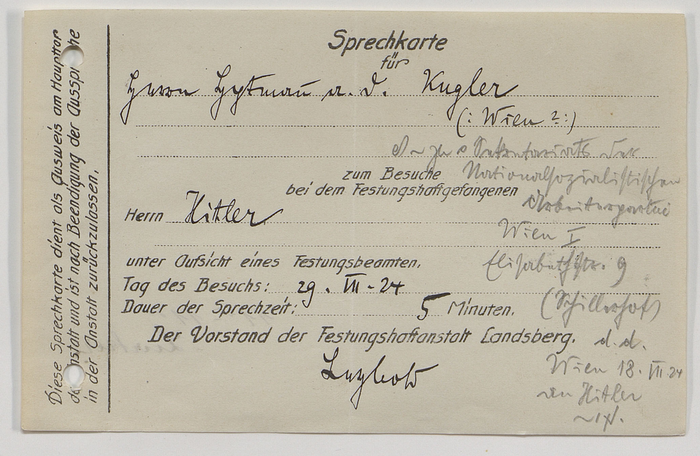 Sprechkarte
für
Herrn Hptman a. D. Kugler
(: Wien 2 :)
Sekretariats der
zum Besuche Nationalsozialistischen
bei dem Festungshaftgefangenen Arbeiterpartei
Herrn Hitler
Wien I
unter Aufsicht eines Festungsbeamten. Elisabethstr. 9
Tag des Besuchs: 29. VII - 24
Dauer der Sprechzeit: 5 Minuten. (Schillerhof)
Der Vorstand der Festungshaftanstalt Landsberg. d. d.
Leybold
Wien 18. VII 24
an Hitler
Diese Sprechkarte dient als Ausweis am Haupttor
der Anstalt und ist nach Beendigung der Aussprache
in der Anstalt zurückzulassen.